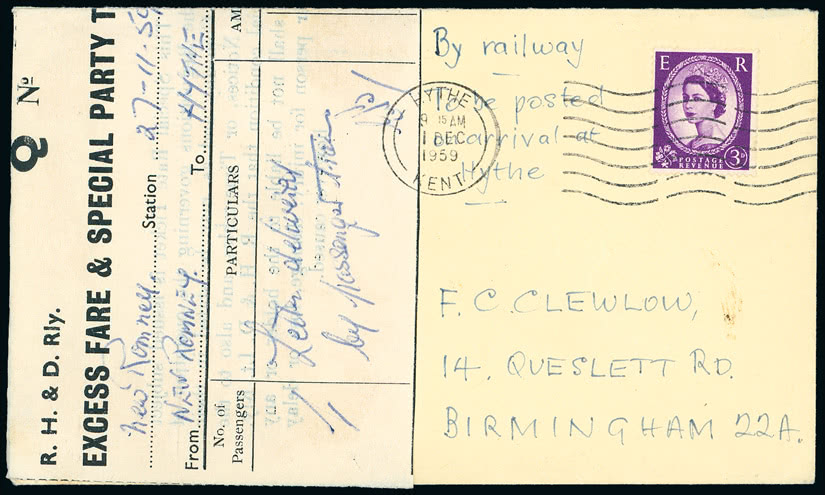 By railway
To be posted
on arrival at
Hythe
E R
POSTAGE
REVENUE
3D
HYTHE
9 15 AM
1 DEC
1959
KENT
F. C. CLEWLOW,
14. QUESLETT RD.
BIRMINGHAM 22A.
Q No
R. H. & D. Rly.
EXCESS FARE & SPECIAL PARTY T
New Romney. Station 27-11-59
From NEW ROMNEY. To HYTHE
No. of Passengers PARTICULARS AM
1 Letter delivered
by Passenger Train